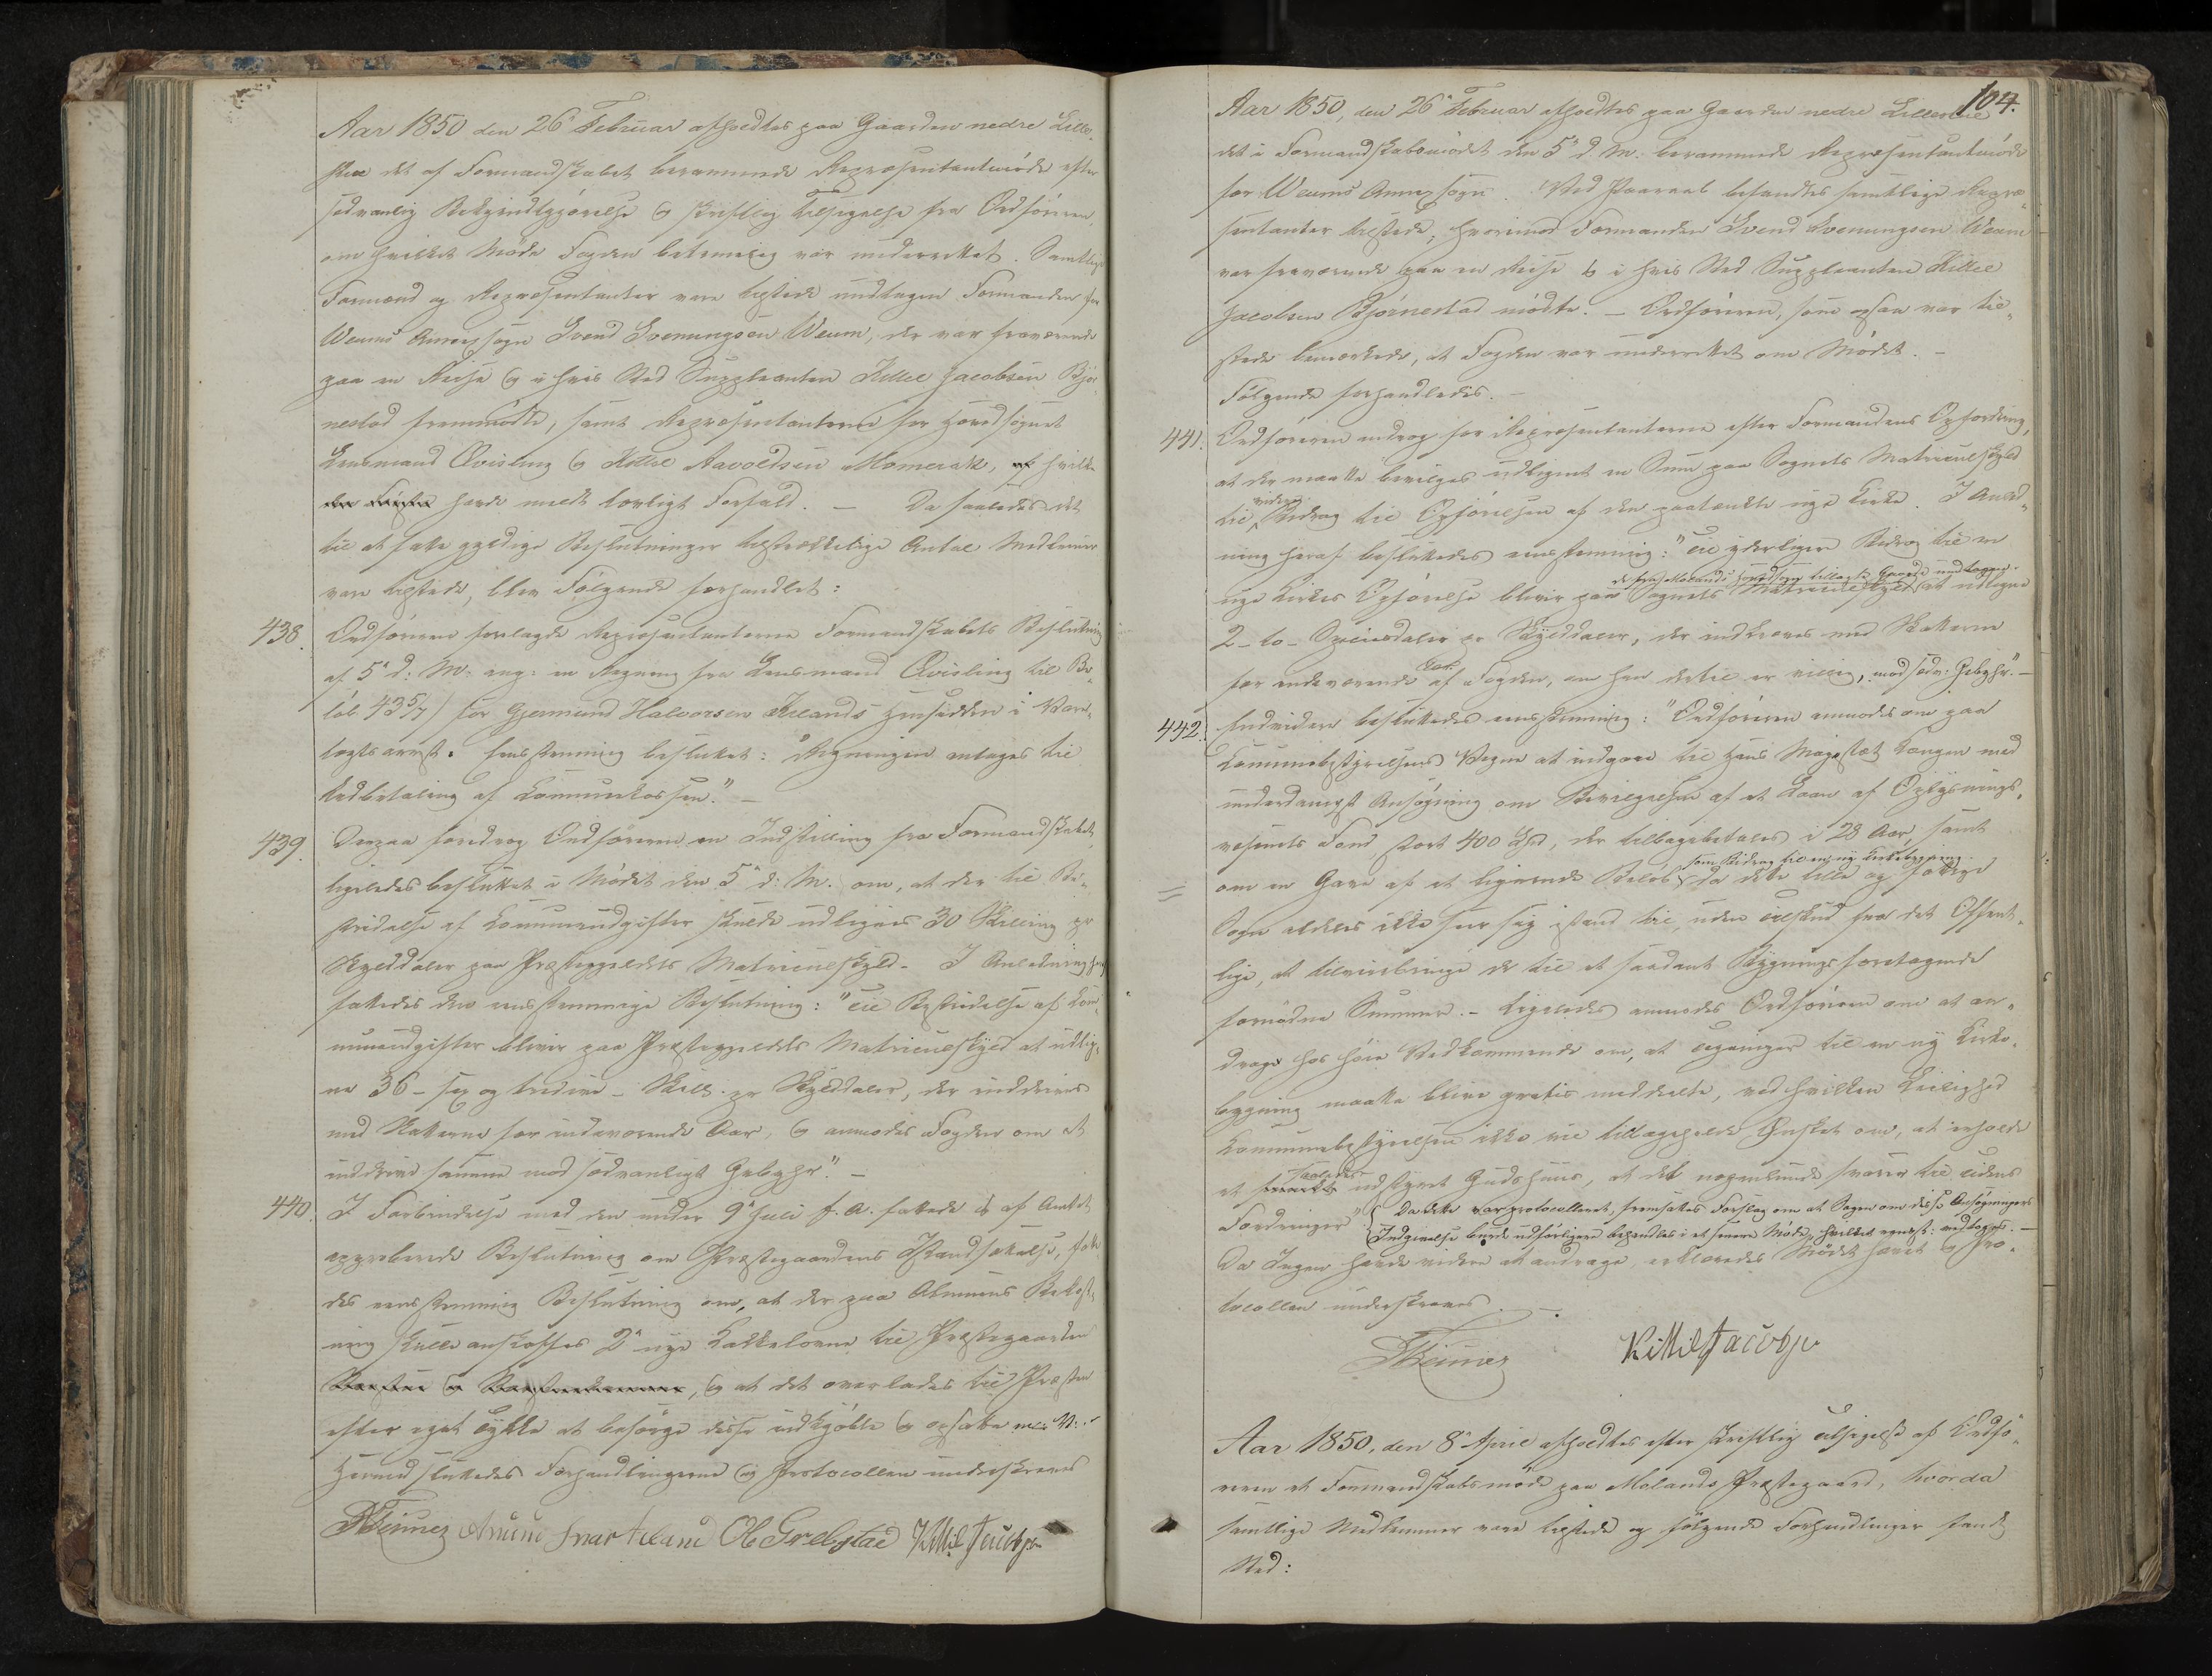 Aar 1850 den 26' Februar afholdtes paa Gaarden nedre Lille-
stue det af Formandskabet berammede Repræsentantmöde efter
sædvanlig Bekjendtgjörelse og skriftlig Tilsigelse fra Ordföreren,
om hvilket Möde Fogden betimelig var underrettet. Samtlige
Formænd og Repræsentanter vare tilstede undtagen Formanden for
Weums Annexsogn Svend Svenungsen Weum, der var fraværende
paa en Reise og i hvis Sted Suppleanten Kittel Jacobsen Bjør-
nestad fremmödte, samt Repræsentanterne for Hovedsognet
Lensmand Qvisling og Kittel Aavoldsen Momrak, af hvilke
den sidste havde meldt lovligt Forfald. — Da saaledes det
til at fatte gyldige Beslutninger tilstrækkelige Antal Medlemmer
vare tilstede, blev Fölgende forhandlet:
438. Ordföreren forelagde Repræsentanterne Formandskabets Beslutning
af 5' d: M: ang: en Regning fra Lensmand Qvisling til Be-
löb 43 5/7 for Gjermund Halvorsen Kilands Hensidden i Vare-
tægtsarrest. Eenstemmig besluttet: "Regningen antages til
Udbetaling af Communekassen." —
439. Derpaa foredrog Ordföreren en Indstilling fra Formandskabet,
ligeledes besluttet i Mödet den 5' d: M. om, at der til Be-
stridelse af Communeudgifter skulde udlignes 30 Skilling pr
Skylddaler paa Præstegjeldets Matriculskyld. I Anledning heraf
fattedes den eenstemmige Beslutning: "Til Bestridelse af Com-
muneudgifter bliver paa Præstegjeldets Matriculskyld at udlig-
ne 36 - sex og tredive - Skill. pr Skylddaler, der inddrives
med Skatterne for indeværende Aar, og anmodes Fogden om at
inddrive samme mod sædvanligt Gebyhr." —
440. I Forbindelse med den under 9' Juli f. A. fattede og af Amtet
approberede Beslutning om Præstegaardens Istandsættelse, fatte-
des eenstemmig Beslutning om, at der paa Almuens Bekost-
ning skulle anskaffes 2' nye Kakkelovne til Præstegaarden
, og at det overlades til Præsten
efter eget Tykke at besörge disse indkjöbte og opsatte
Hermed sluttedes Forhandlingerne og Protocollen underskreves
Ole Grelstad Kittil Jacobsen
104.
Aar 1850, den 26' Februar afholdtes paa Gaarden nedre Lillestue
det i Formandskabsmödet den 5' d. M. berammede Repræsentantmöde
for Weums Annexsogn. Ved Paaraab befandtes samtlige Repræ-
sentanter tilstede, hvorimod Formanden Svend Svenungsen Weum
var fraværende paa en Reise og i hvis Sted Suppleanten Kittel
Jacobsen Bjørnestad mödte. — Ordföreren, som ogsaa var til-
stede bemærkede, at Fogden var underrettet om Mödet. —
Fölgende forhandledes. —
441. Ordföreren androg for Repræsentanterne efter Formandens Opfordring,
at der maatte bevilges udlignet en Sum paa Sognets Matriculskyld
videre
til Bidrag til Opförelsen af den paatænkte nye Kirke. I Anled-
ning heraf besluttedes eenstemmig: "Til yderligere Bidrag til en
de fra Molands Hovedsogn tillagte Gaarde undtagne
nye Kirkes Opförelse bliver paa Sognets Matriculskyld at udligne
2 - to - Speciesdaler pr Skylddaler, der indkræves med Skatterne
Aar
for indeværende af Fogden, om han dertil er villig, mod sedv: Gebyhr." —
442. Endvidere besluttedes eenstemmig: "Ordföreren anmodes om paa
Communebestyrelsens Vegne at indgaae til Hans Majestæt Kongen med
underdanigst Ansögning om Bevilgelsen af et Laan af Oplysnings-
væsenets Fond, stort 400 Spd, der tilbagebetales i 28 Aar, samt
som Bidrag til en ny Kirkebygning
om en Gave af et lignende Belöb da dette lille og fattige
Sogn aldeles ikke seer sig istand til, uden Tilskud fra det Offent-
lige, at tilveiebringe de til et saadant Bygningsforetagende
fornödne Summer. — Ligeledes anmodes Ordföreren om at an-
drage hos höie Vedkommende om, at Tegninger til en ny Kirke-
bygning maatte blive gratis meddeelte, ved hvilken Leilighed
Communebestyrelsen ikke vil tilbageholde Önsket om, at erholde
saaledes
et udstyret Gudshuus, at det nogenlunde svarer til Tidens
Fordringer" Da dette var protocolleret, fremsattes Forslag om at Sagen om disse Ansögningers
Indgivelse burde udförligere behandles i et senere Möde, hvilket eenst: vedtoges. —
Da Ingen havde videre at andrage, erklæredes Mödet hævet og Pro-
tocollen underskreves. —
Kittil Jacobsen
Aar 1850, den 8' April afholdtes efter skriftlig Tilsigelse af Ordfö-
reren et Formandskabsmöde paa Molands Præstegaard, hvorda
samtlige Medlemmer vare tilstede og fölgende Forhandlinger fandt
Sted: